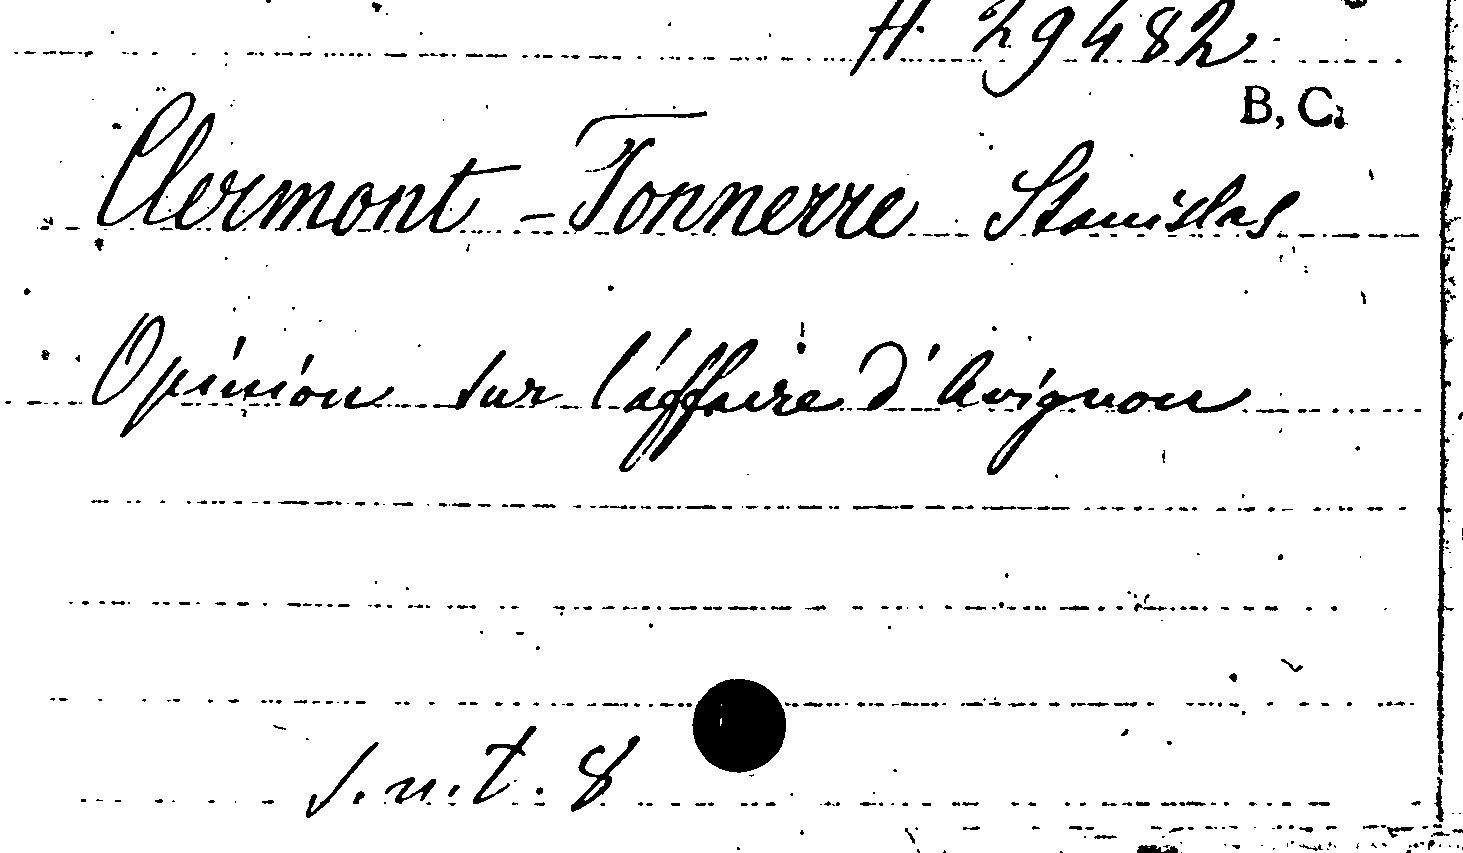 H. 29482
B, C.
Clermont-Tonnerre Stanislas
Opinion sur l'affaire d'Avignon
s.n.t. 8